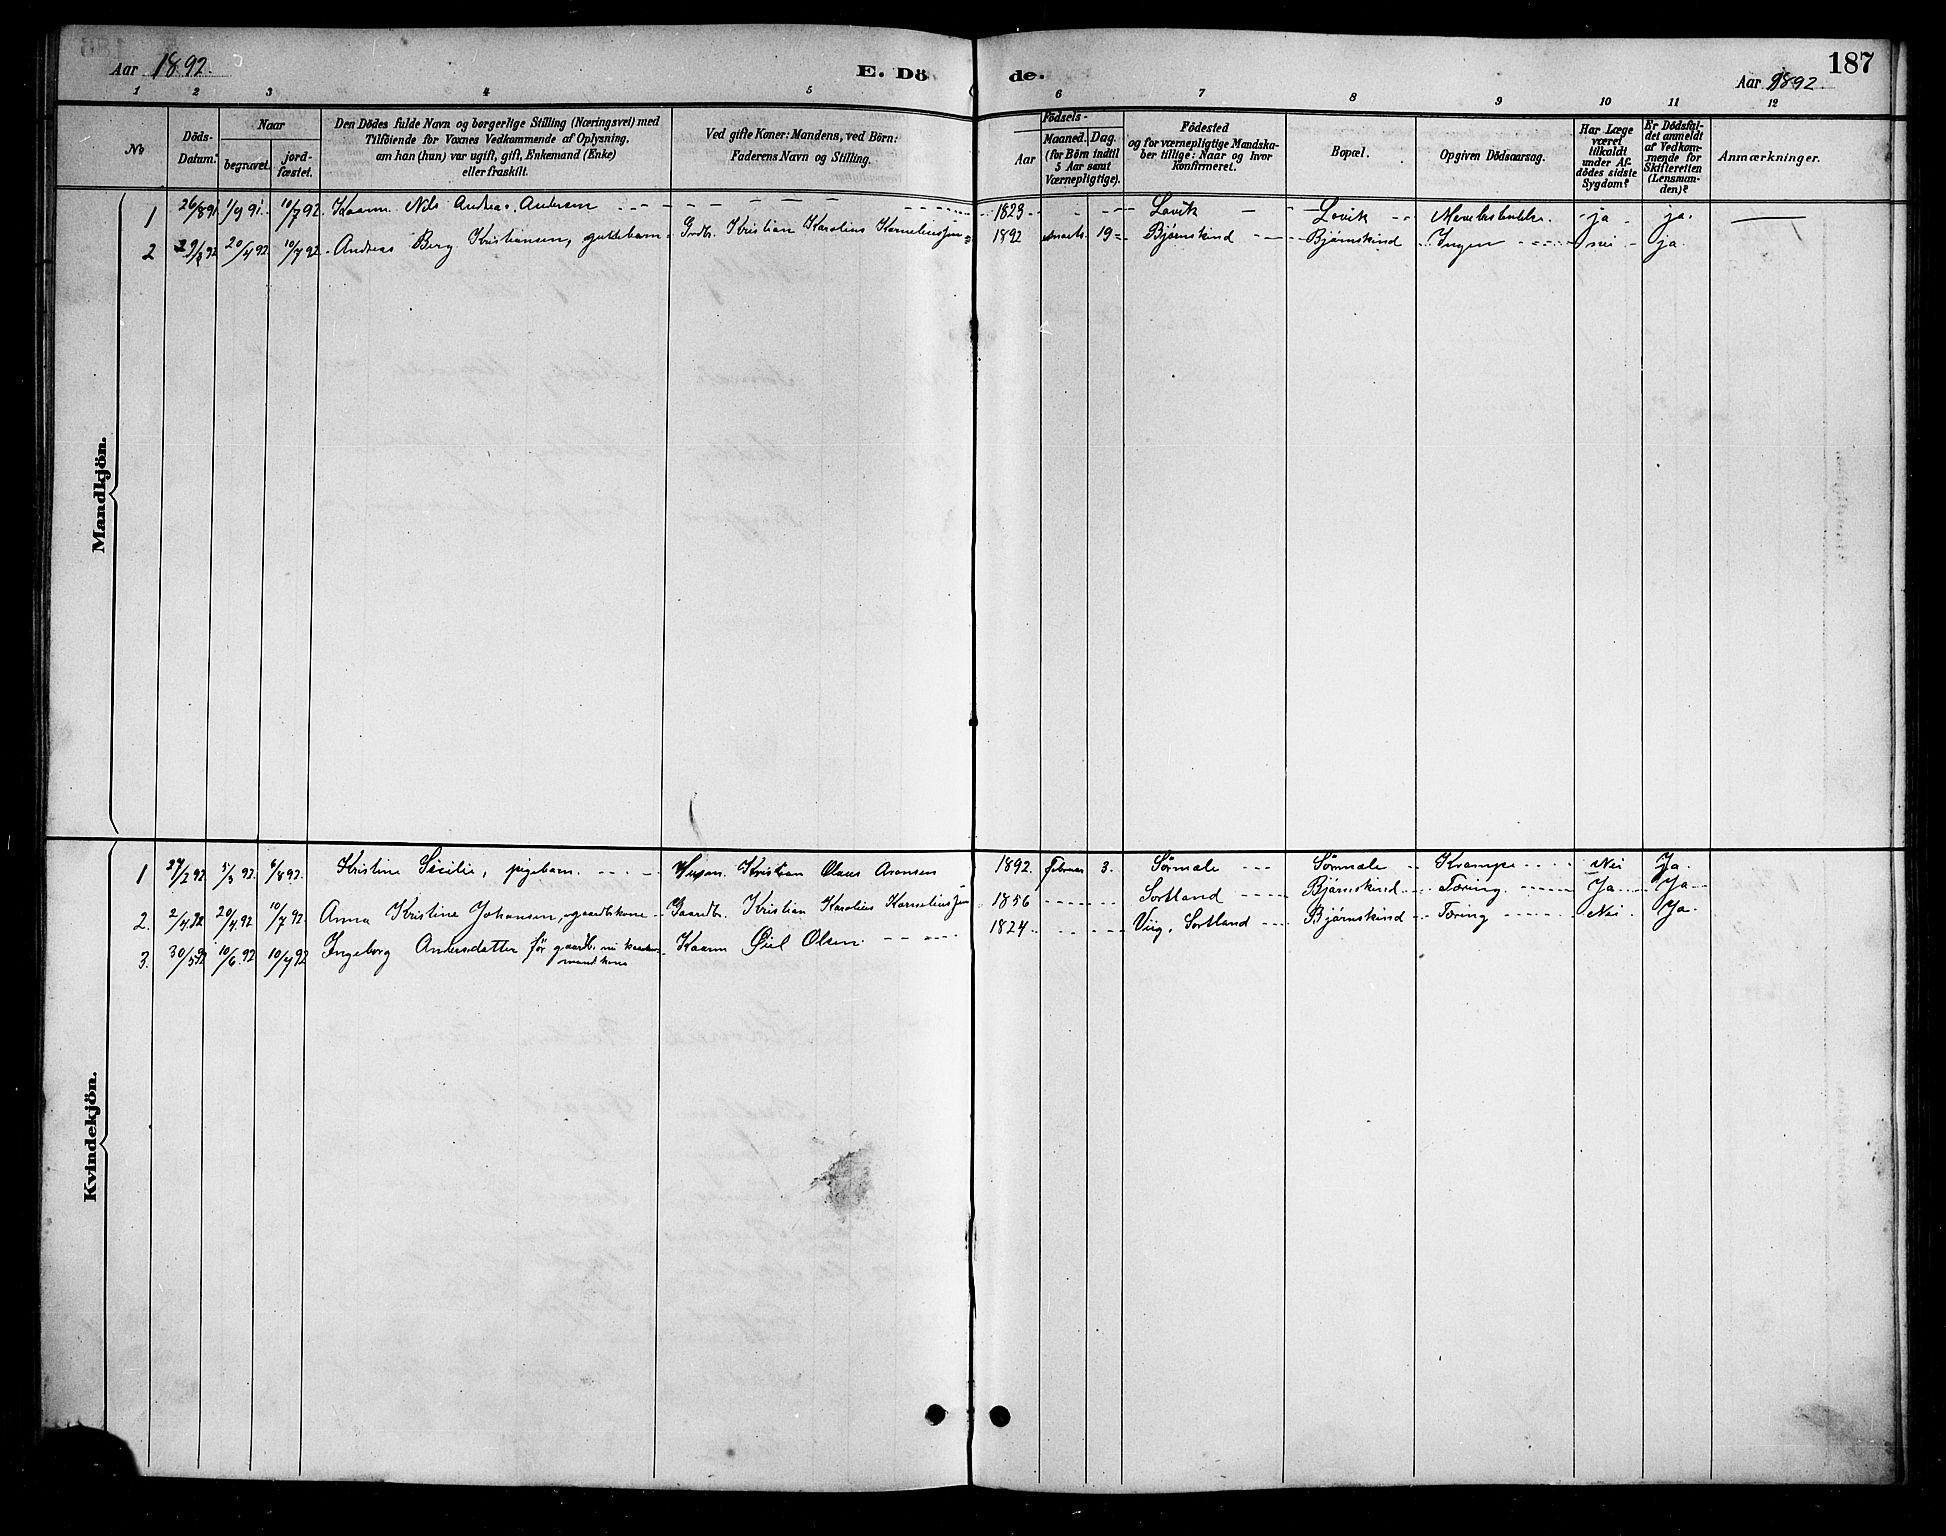 Aar 1892. E. Döde. Aar 1892. 187
1 2 3 4 5 6 7 8 9 10 11 12
No
Döds-Datum.
Naar
begravet.
jord-fæstet.
Den Dödes fulde Navn og borgerlige Stilling (Næringsvei) med
Tilföiende for Voxnes Vedkommende af Oplysning,
om han (hun) var ugift, gift, Enkemand (Enke)
eller fraskilt.
Ved gifte Koner: Mandens, ved Börn:
Faderens Navn og Stilling.
Födsels-
Aar
Maaned. Dag.
(for Börn indtil
5 Aar samt
Værnepligtige).
Födested
og for værnepligtige Mandska-
ber tillige: Naar og hvor
konfirmeret.
Bopæl.
Opgiven Dödsaarsag.
Har Læge
været
tilkaldt
under Af-
dödes sidste
Sygdom?
Er Dödsfal-
det anmeldt
af Vedkom-
mende for
Skifteretten
(Lensman-
den)?
Anmærkninger.
Mandkjön.
1 26/8 91 1/9 91. 10/7 92 Kaarm. Nils Andreas Andersen 1823 Lovik Lovik ja ja.
2 29/3 92 20/4 92 10/7 92. Andreas Berg Kristiansen, guttebarn Grdbr. Kristian Karolius Korneliussen 1892 Marts 19 Bjørnskind Bjørnskind Ingen nei ja
Kvindekjön.
1 27/2 92 5/3 92 6/8 92. Kristine Secilie, pigebarn Husm. Kristian Olaus Aronsen 1892. Februar 3. Sørmæle Sørmæle Krampe Nei Ja.
2. 2/4 92 20/4 92 10/7 92 Anna Kristine Johansen, gaardbkone Gaardbr. Kristian Karolius Korneliussen 1856 Sortland Bjørnskind Tæring. Ja Ja
3. 30/5 92 10/6 92 10/7 92 Ingeborg Andersdatter før gaardb. nu kaar-
mandkone Kaarm Øiel Olsen 1824 Viig, Sortland Bjørnskind Tæring Nei Ja